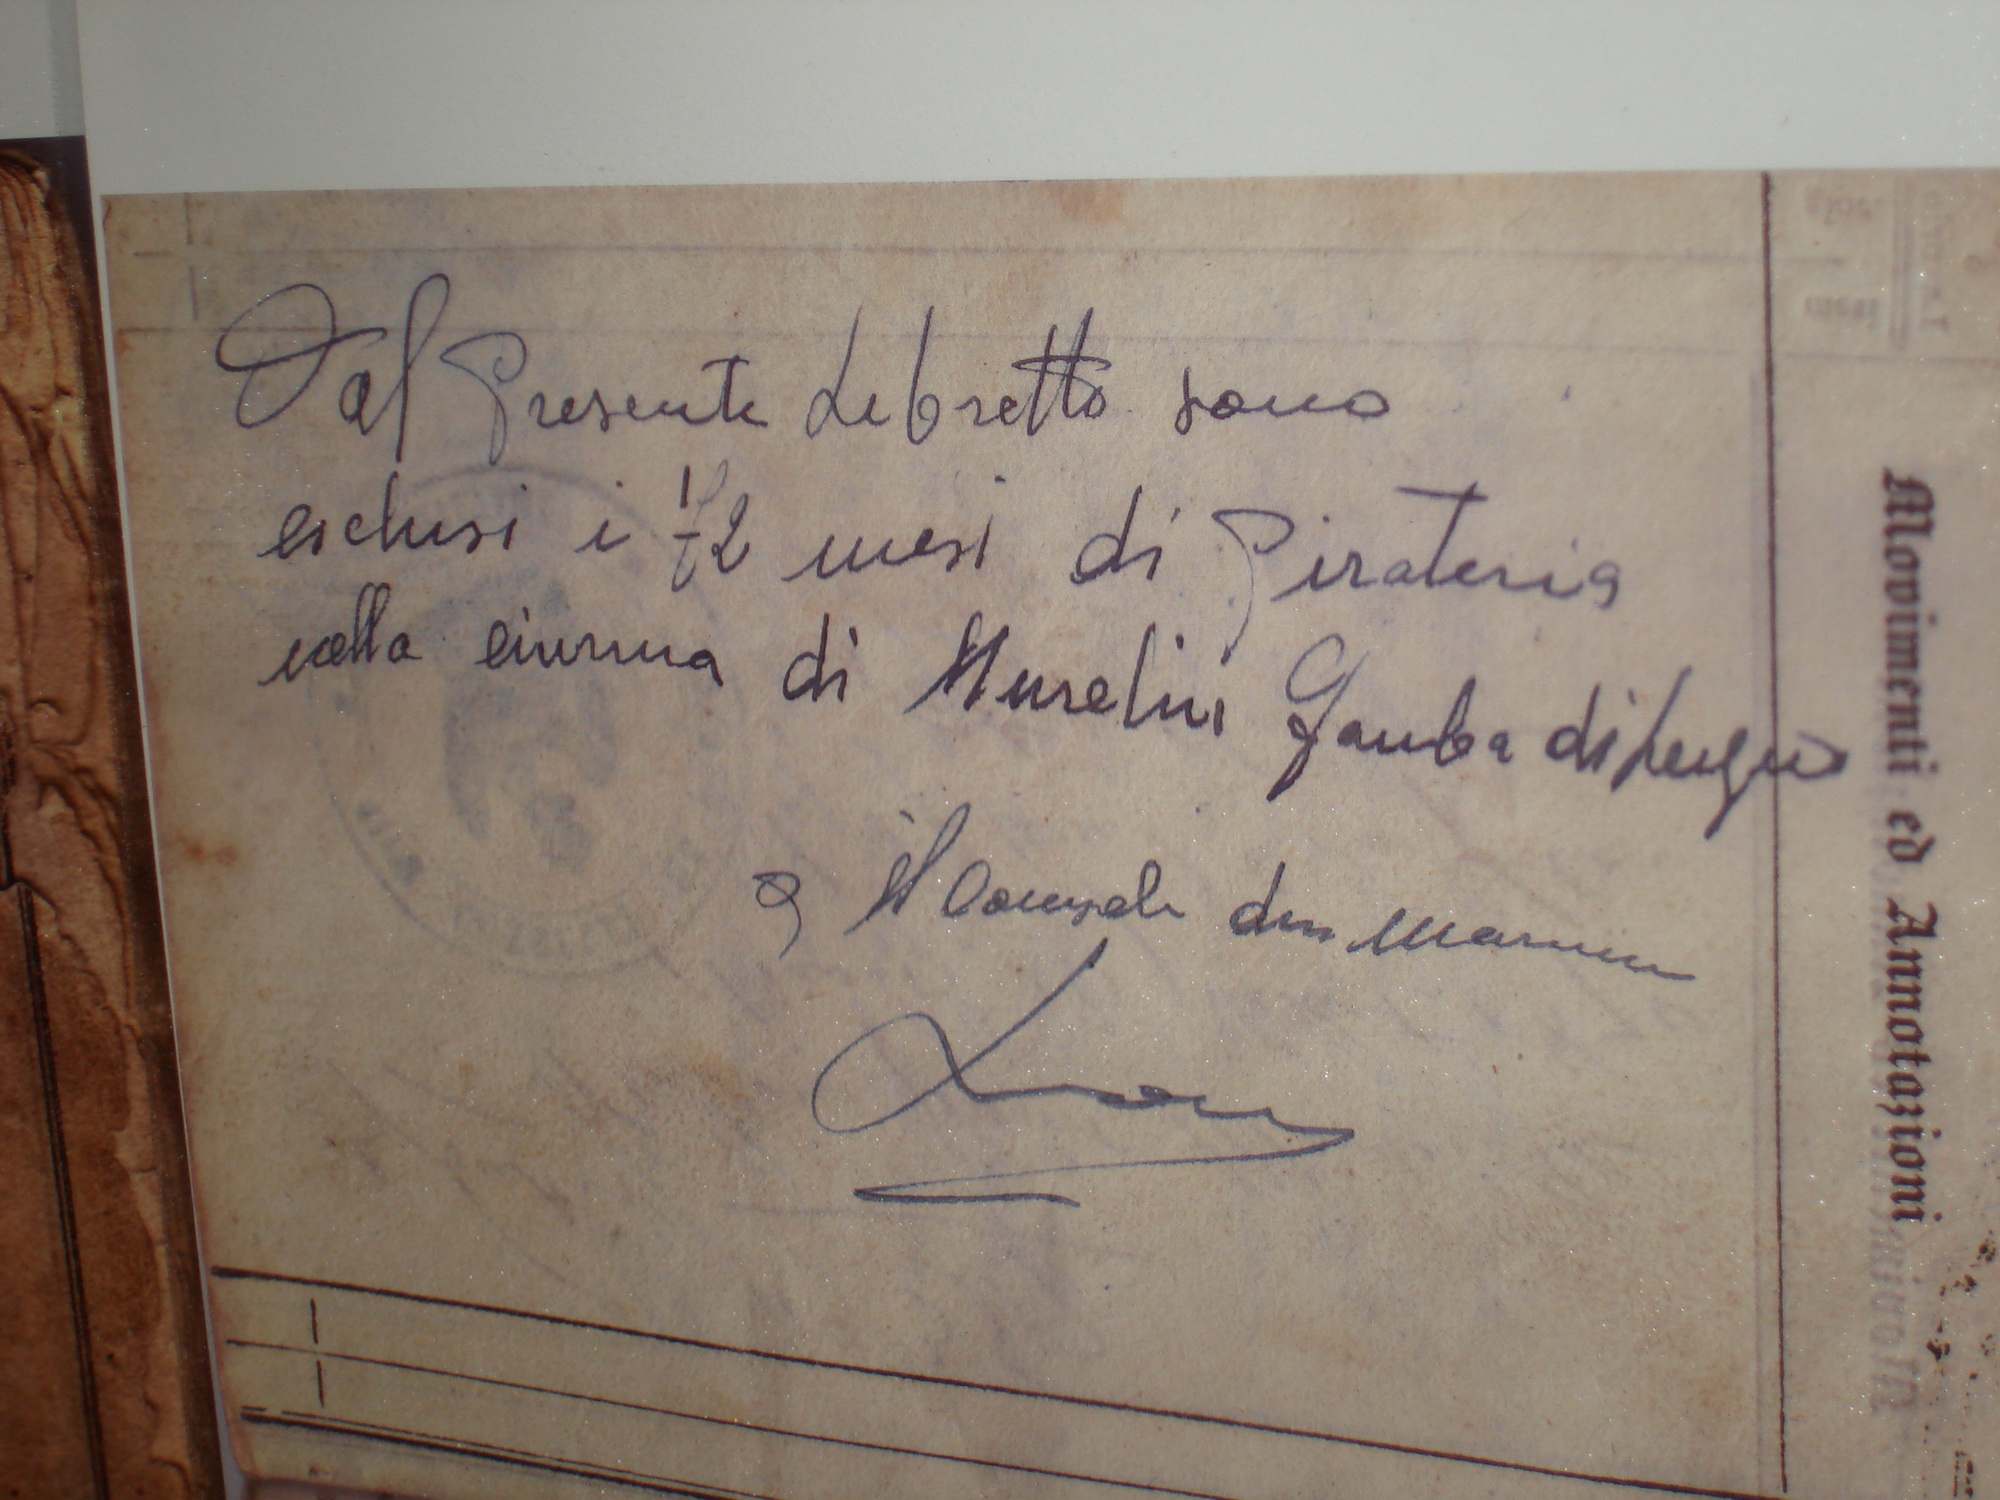 Dal Presente Libretto sono
esclusi i 12 mesi di Pirateria
nella ciurma di Gamba di Legno
il Console
Movimenti ed Annotazioni
mesi